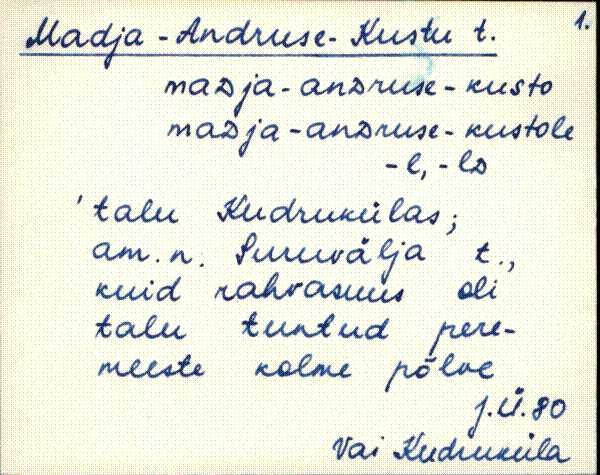 1.
Madja-Andruse-Kustu t.
maDja-anDruse-kusto
maDja-anDruse-kustole
-l, -lD
'talu Kudrukülas;
am. n. Suruvälja t.,
kuid rahvasuus oli
talu tuntud pere-
meeste kolme põlve
J.Ü.80
Vai Kudruküla